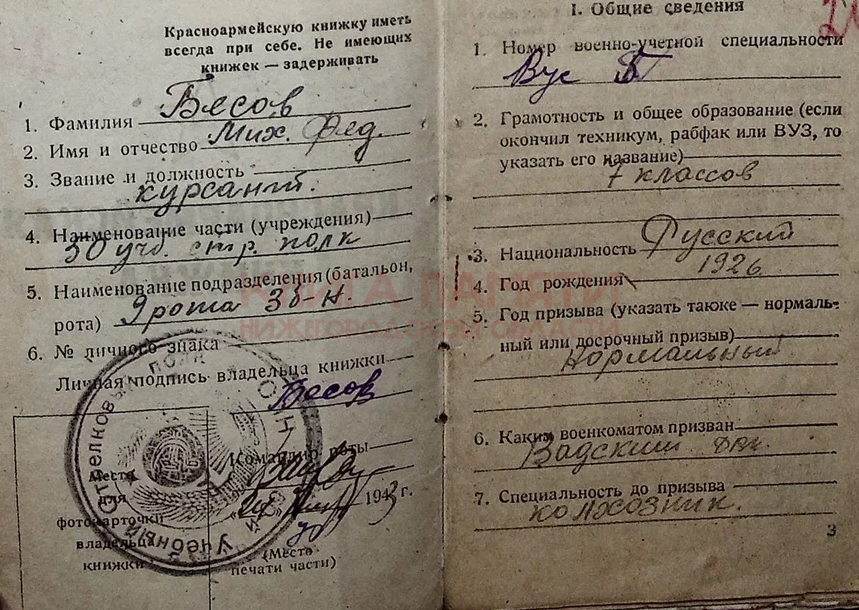 Красноармейскую книжку иметь
всегда при себе. Не имеющих
книжек — задерживать
1. Фамилия Бесов
2. Имя и отчество Мих. Фед.
3. Звание и должность
курсант.
4. Наименование части (учреждения)
30 учб. стр. полк
5. Наименование подразделения (батальон,
рота) 9 рота 3 б-н.
6. № личного знака
Личная подпись владельца книжки
Бесов
Командир роты
Место
для
фотокарточки
владельца
книжки
1943 г.
(Место
печати части)
Учебный Стрелковый полк
I. Общие сведения
1. Номер военно-учетной специальности
Вус
2. Грамотность и общее образование (если
окончил техникум, рабфак или ВУЗ, то
указать его название)
7 классов
3. Национальность Русский
4. Год рождения 1926
5. Год призыва (указать также — нормаль-
ный или досрочный призыв)
нормальный
6. Каким военкоматом призван
Вадский
7. Специальность до призыва
колхозник.
3
КНИГА ПАМЯТИ
НИЖЕГОРОДСКОЙ ОБЛАСТИ